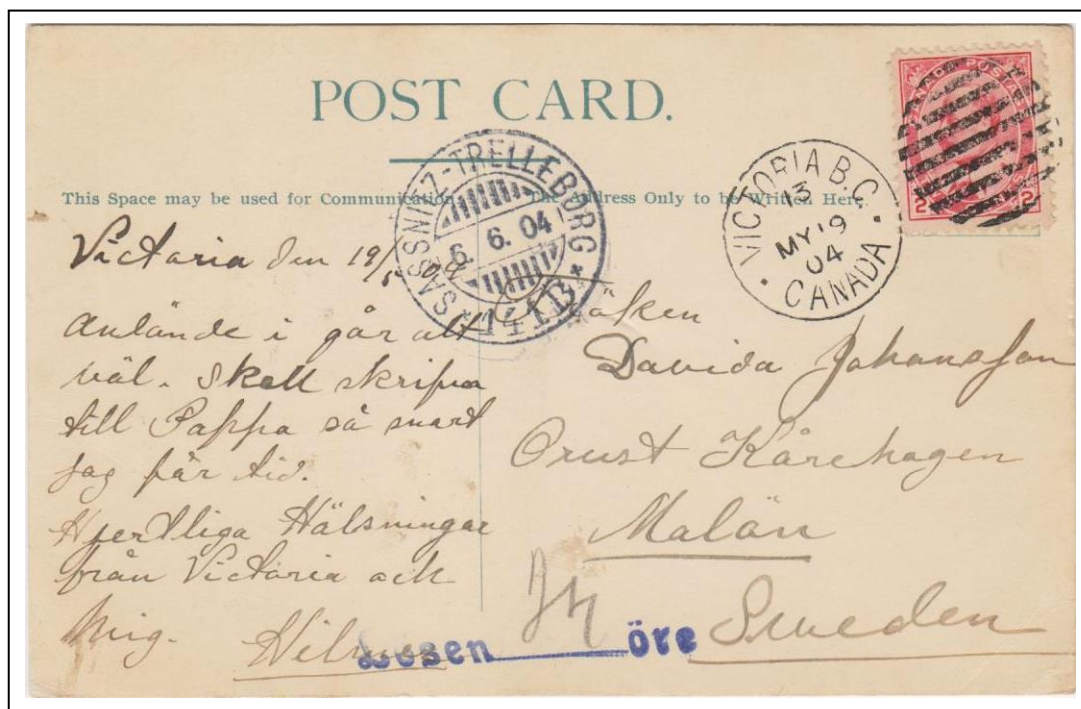 POST CARD.
This Space may be used for Communication The Address Only to be Written Here.
CANADA POSTAGE
2 2
VICTORIA B.C.
13
MY 19
04
CANADA
SASSNITZ-TRELLEBORG
6. 6. 04
141 B
Victoria den 19/5 04
Anlände i går allt
väl. Skall skrifva
till Pappa så snart
jag får tid.
Hjertliga Hälsningar
från Victoria och
mig. Hilma
Fröken
Davida Johansson
Orust Kårehagen
Malön
Sweden
Lösen öre